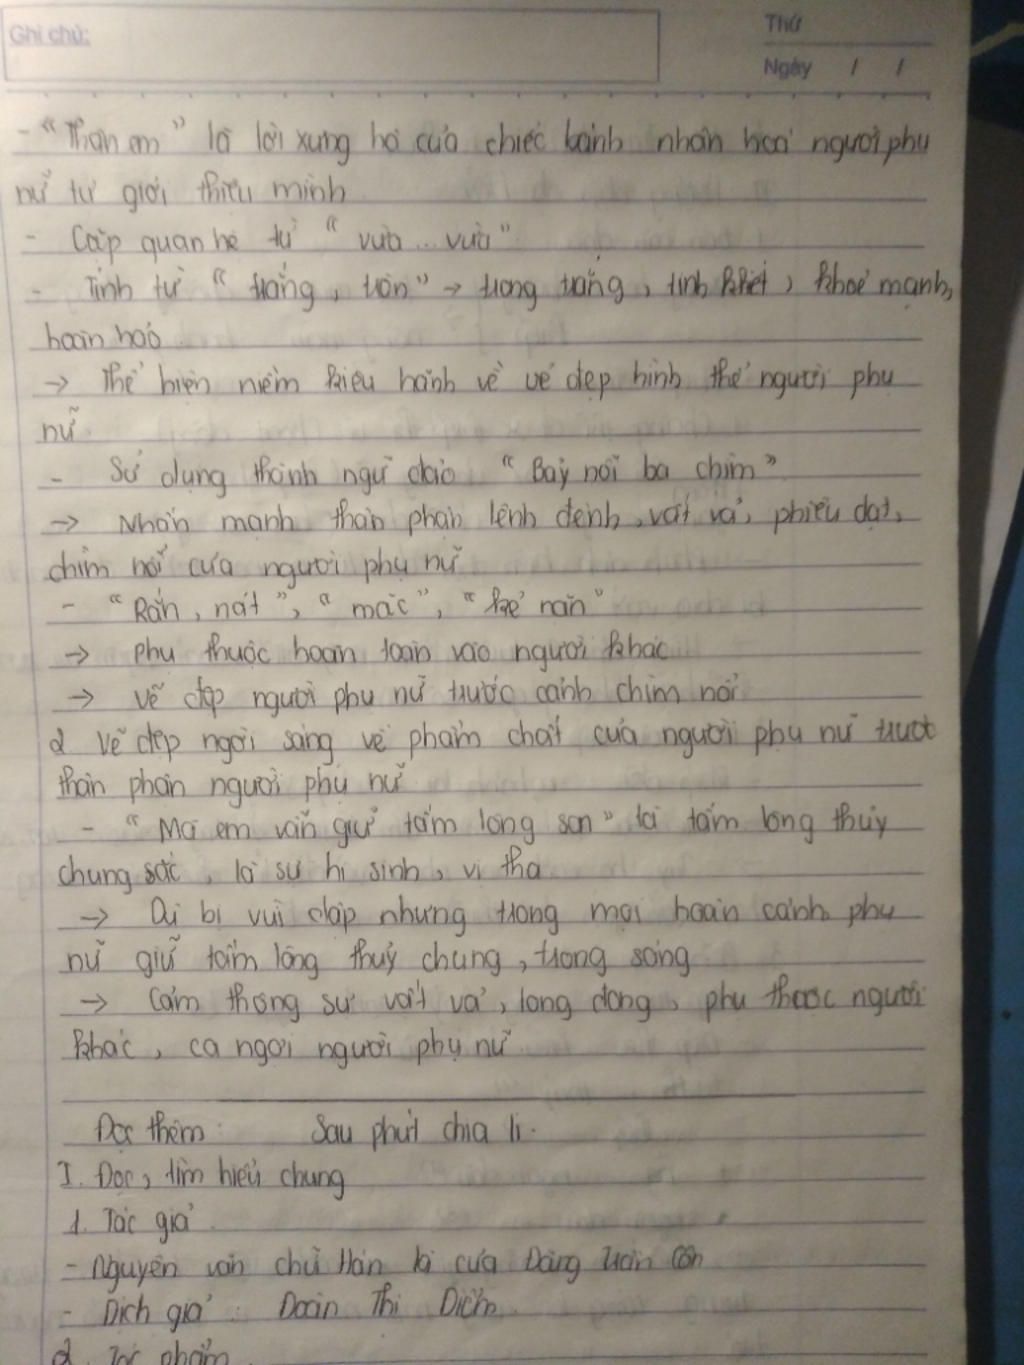 Ghi chú:
Thứ
Ngày / /
- "Thân em" là lời xưng hô của chiếc bánh nhân hoá người phụ
nữ tự giới thiệu mình
- Cặp quan hệ từ "vừa .. vừa"
- Tính từ "trắng, tròn" → trong trắng, tinh khiết, khoẻ mạnh,
hoàn hảo
→ Thể hiện niềm kiêu hãnh về vẻ đẹp hình thể người phụ
nữ
- Sử dụng thành ngữ đảo "Bảy nổi ba chìm"
→ Nhấn mạnh thân phận lênh đênh, vất vả, phiêu dạt,
chìm nổi của người phụ nữ
- "Rắn, nát", "mặc", "kẻ nặn"
→ phụ thuộc hoàn toàn vào người khác
→ vẽ đẹp người phụ nữ trước cảnh chìm nổi
2 vẽ đẹp ngời sáng về phẩm chất của người phụ nữ trước
thân phận người phụ nữ
- "Mà em vẫn giữ tấm lòng son" là tấm lòng thuỷ
chung sắc, là sự hi sinh, vị tha
→ Dù bị vùi dập nhưng trong mọi hoàn cảnh phụ
nữ giữ tấm lòng thuỷ chung, trong sáng
→ Cảm thông sự vất vả, long đong, phụ thuộc người
khác, ca ngợi người phụ nữ
Đọc thêm: Sau phút chia li.
I. Đọc, tìm hiểu chung
1. Tác giả
- Nguyên văn chữ Hán là của Đặng Trần Côn
- Dịch giả: Đoàn Thị Điểm
2. Tác phẩm